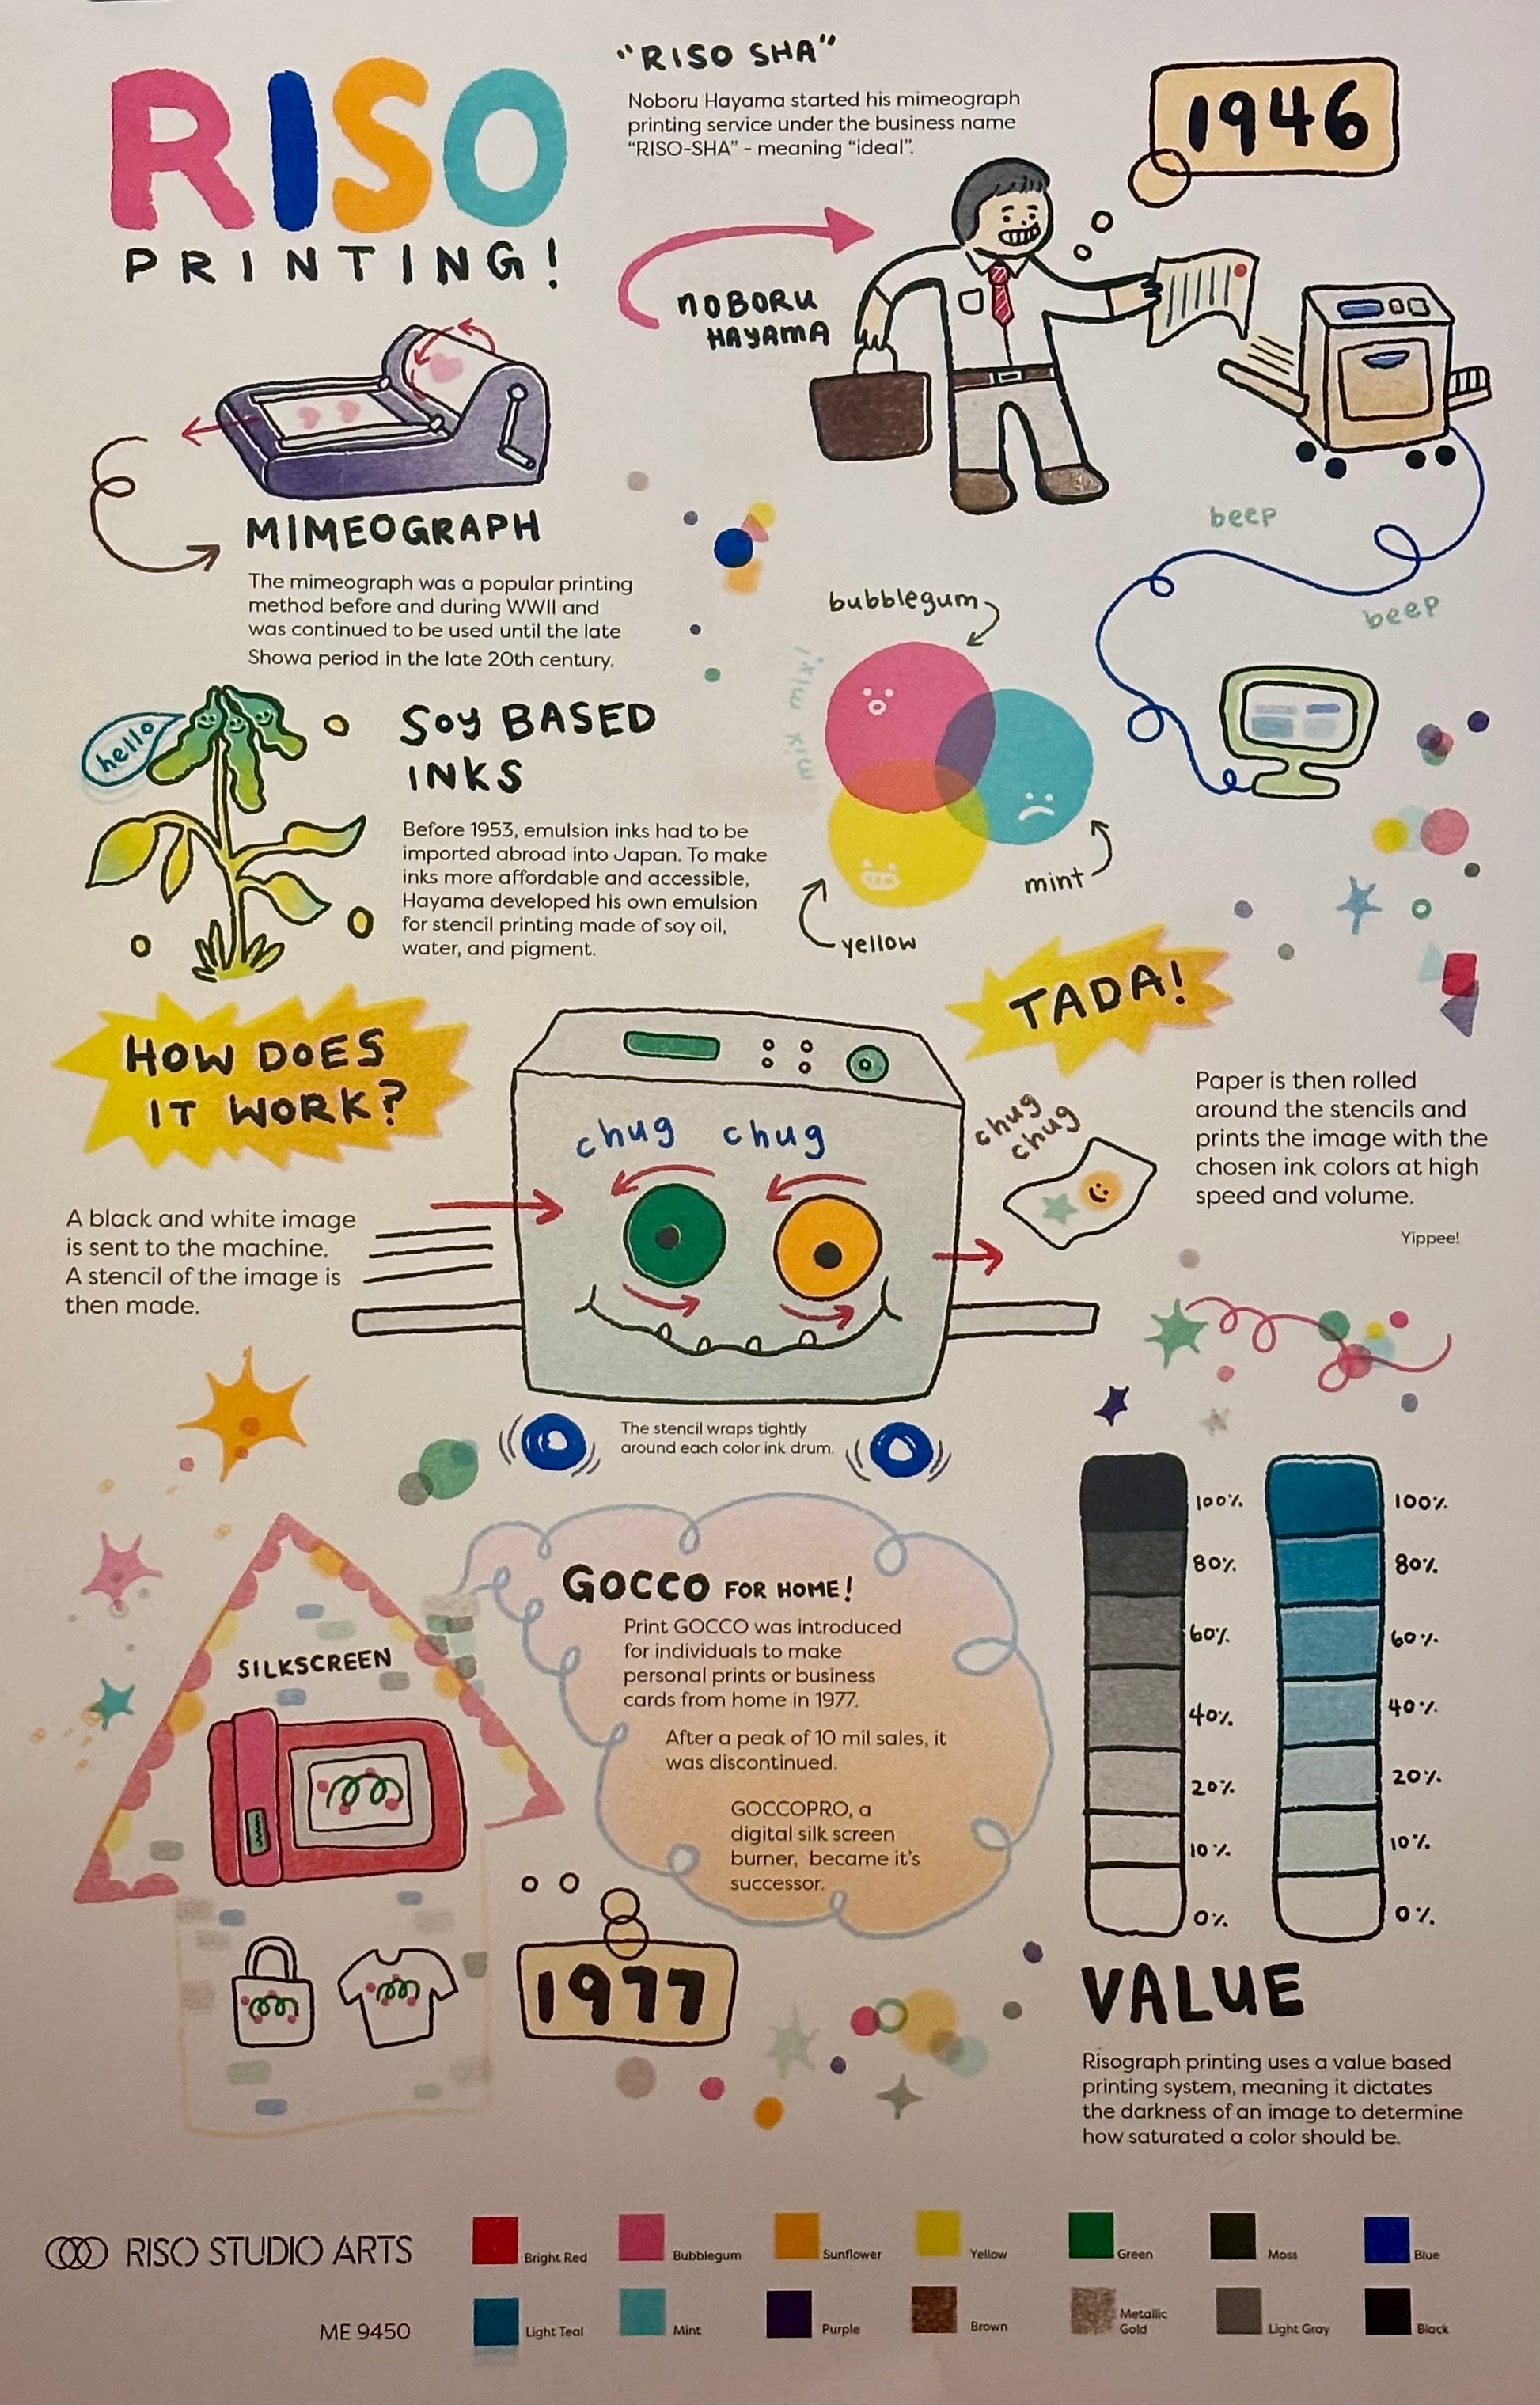 RISO
PRINTING!
"RISO SHA"
Noboru Hayama started his mimeograph
printing service under the business name
"RISO-SHA" - meaning "ideal".
1946
NOBORU
HAYAMA
MIMEOGRAPH
The mimeograph was a popular printing
method before and during WWII and
was continued to be used until the late
Showa period in the late 20th century.
beep
beep
bubblegum
mix mixi
mint
yellow
hello
Soy BASED
INKS
Before 1953, emulsion inks had to be
imported abroad into Japan. To make
inks more affordable and accessible,
Hayama developed his own emulsion
for stencil printing made of soy oil,
water, and pigment.
HOW DOES
IT WORK?
A black and white image
is sent to the machine.
A stencil of the image is
then made.
chug chug
The stencil wraps tightly
around each color ink drum.
TADA!
chug
chug
Paper is then rolled
around the stencils and
prints the image with the
chosen ink colors at high
speed and volume.
Yippee!
SILKSCREEN
GOCCO FOR HOME!
Print GOCCO was introduced
for individuals to make
personal prints or business
cards from home in 1977.
After a peak of 10 mil sales, it
was discontinued.
GOCCOPRO, a
digital silk screen
burner, became it's
successor.
1977
100% 100%
80% 80%
60% 60%
40% 40%
20% 20%
10% 10%
0% 0%
VALUE
Risograph printing uses a value based
printing system, meaning it dictates
the darkness of an image to determine
how saturated a color should be.
RISO STUDIO ARTS
ME 9450
Bright Red Bubblegum Sunflower Yellow Green Moss Blue
Light Teal Mint Purple Brown Metallic
Gold Light Gray Black